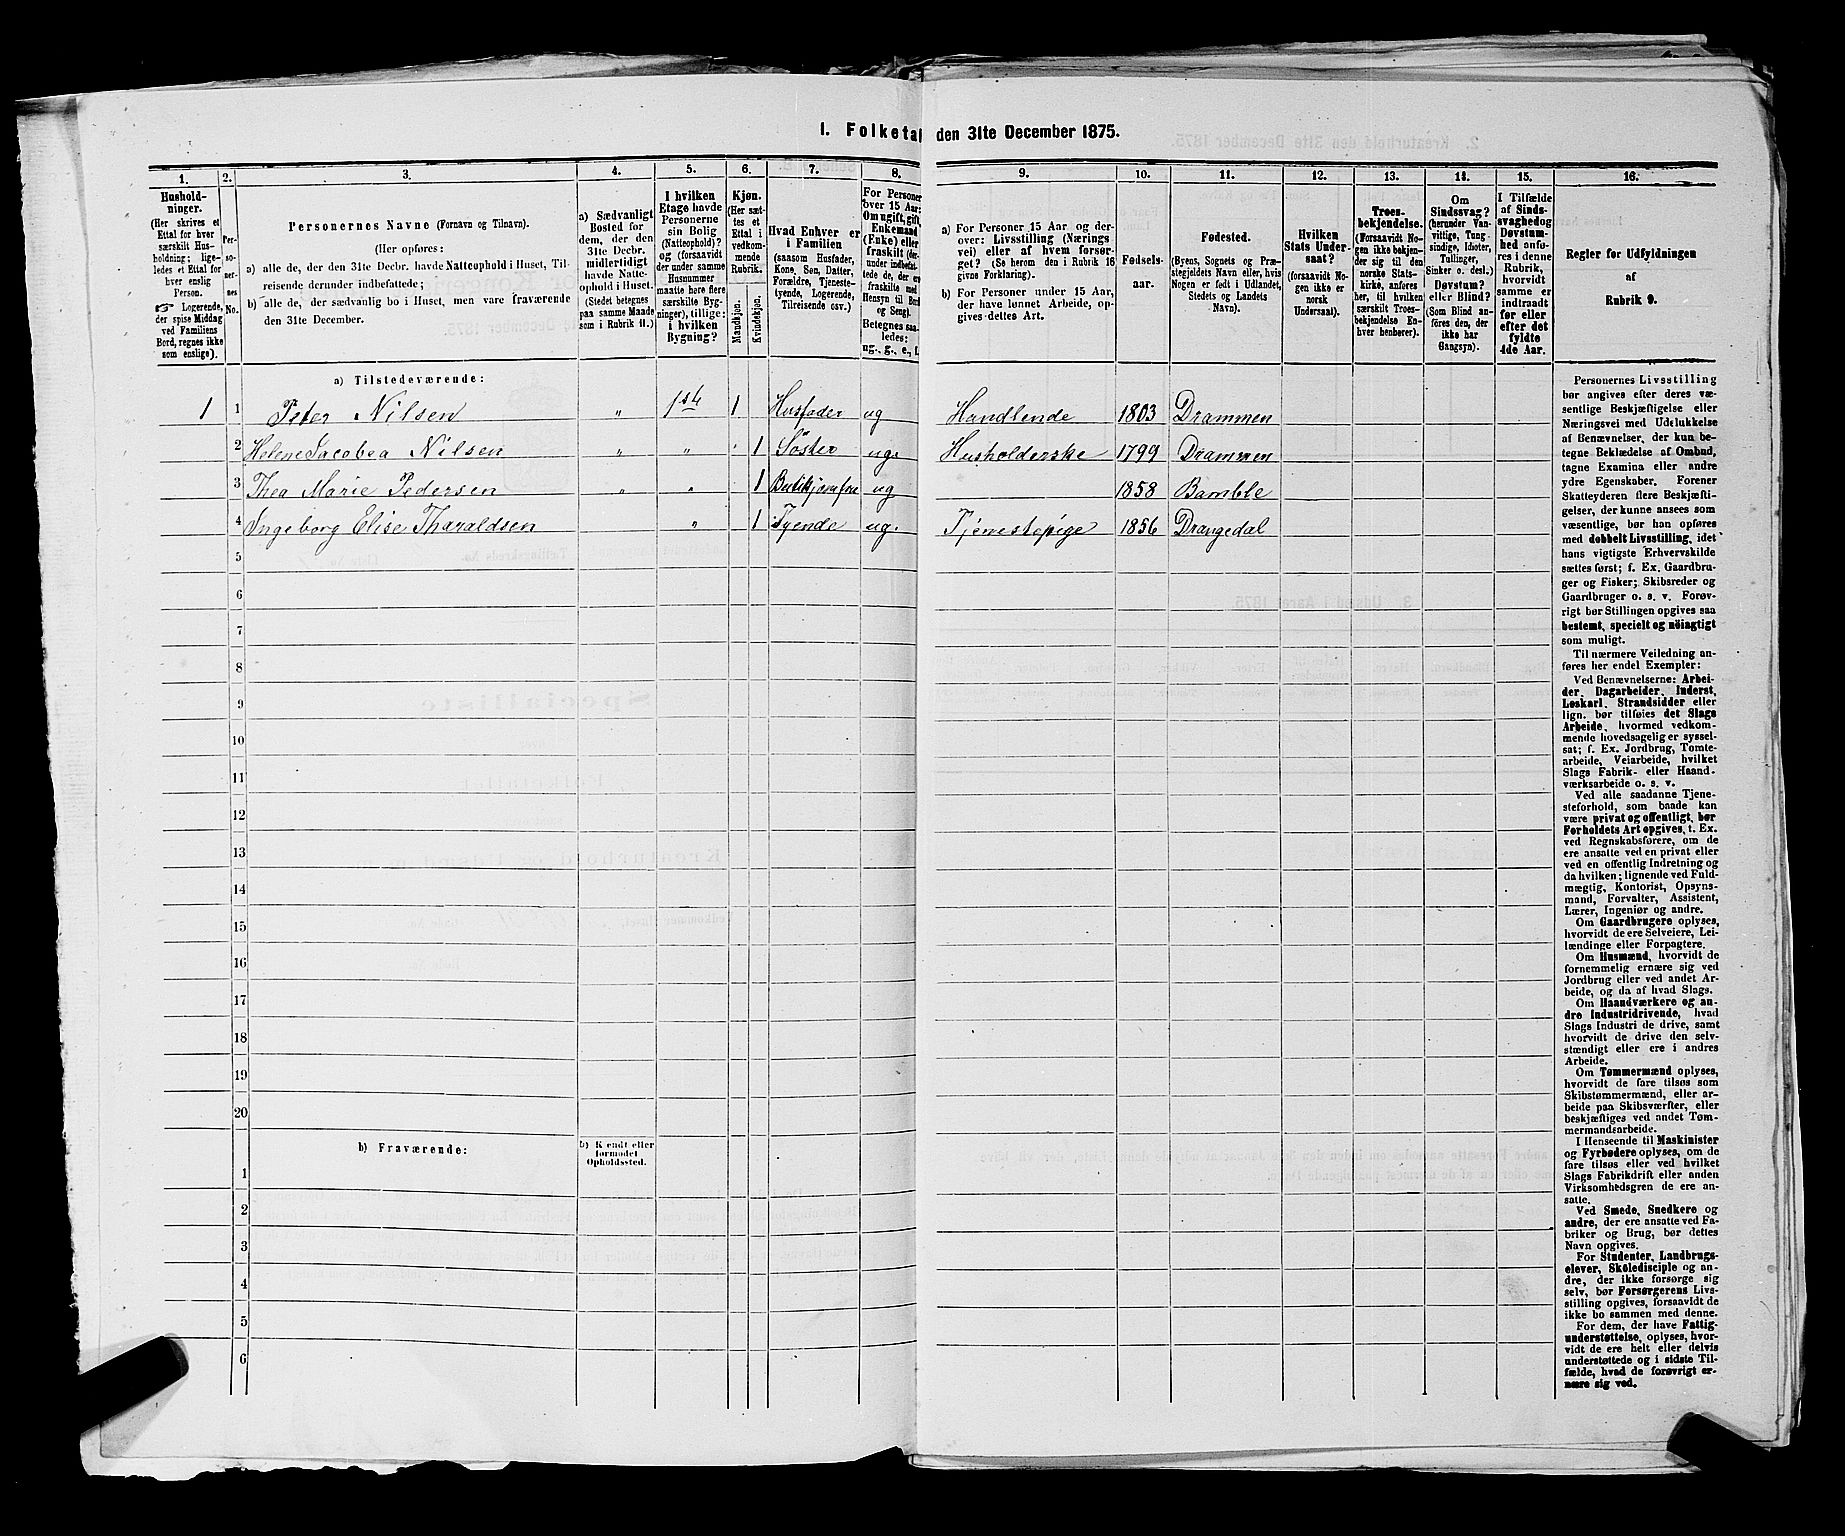 1. Folketal den 31te December 1875.
1. 2. 3. 4. 5. 6. 7. 8. 9. 10. 11. 12. 13. 14. 15. 16.
Hushold-
ninger.
(Her skrives et
Ettal for hver
særskilt Hus-
holdning; lige-
ledes et Ettal for
hver enslig
Person.
☞ Logerende,
der spise Middag
ved Familiens
Bord, regnes ikke
som enslige).
Per-
so-
ner-
nes
No.
Personernes Navne (Fornavn og Tilnavn).
(Her opføres:
a) alle de, der den 31te Decbr. havde Natteophold i Huset, Til-
reisende derunder indbefattede;
b) alle de, der sædvanlig bo i Huset, men vare fraværende
den 31te December.
a) Sædvanligt
Bosted for
dem, der den
31te Decbr.
midlertidigt
havde Natte-
ophold i Huset.
(Stedet betegnes
paa samme Maade
som i Rubrik 11.)
I hvilken
Etage havde
Personerne
sin Bolig
(Natteophold)?
og (forsaavidt
der under samme
Husnummer
maatte høre flere
særskilte Byg-
ninger), tillige:
i hvilken
Bygning?
Kjøn.
(Her sæt-
tes et
Ettal i
vedkom-
mende
Rubrik.
Mandkjøn.
Kvindekjøn.
Hvad Enhver er
i Familien
(saasom Husfader,
Kone, Søn, Datter,
Forældre, Tjeneste-
tyende, Logerende,
Tilreisende osv.)
For Personer
over 15 Aar:
Om ugift, gift,
Enkemand
(Enke) eller
fraskilt (der-
under indbefat-
tede de, der ere
fraskilte med
Hensyn til Bord
og Seng).
Betegnes saa-
ledes:
ug., g., e., f.
a) For Personer 15 Aar og der-
over: Livsstilling (Nærings-
vei) eller af hvem forsør-
get? (Se herom den i Rubrik 16
givne Forklaring).
b) For Personer under 15 Aar,
der have lønnet Arbeide, op-
gives dettes Art.
Fødsels-
aar.
Fødested.
(Byens, Sognets og Præ-
stegjeldets Navn eller, hvis
Nogen er født i Udlandet,
Stedets og Landets
Navn).
Hvilken
Stats Under-
saat?
(forsaavidt No-
gen ikke er
norsk
Undersaat).
Troes-
bekjendelse.
(Forsaavidt No-
gen ikke bekjen-
der sig til den
norske Stats-
kirke, anføres
her, til hvilken
særskilt Troes-
bekjendelse En-
hver henhører).
Om
Sindssvag?
(herunder Van-
vittige, Tung-
sindige, Idioter,
Tullinger,
Sinker o. desl.)
Døvstum?
eller Blind?
(Som Blind an-
føres den, der
ikke har
Gangsyn).
I Tilfælde
af Sinds-
svaghed og
Døvstum-
hed anfø-
res i denne
Rubrik,
hvorvidt
samme er
indtraadt
før eller
efter det
fyldte
4de Aar.
Regler for Udfyldningen
af
Rubrik 9.
a) Tilstedeværende:
1 1 Peter Nilsen " 1st 1 Husfader ug Handlende 1803 Drammen
2 Helene Jacobea Nilsen " " 1 Søster ug. Husholderske 1799 Drammen
3 Thea Marie Pedersen " " 1 ug 1858 Bamble
4 Ingeborg Elise Tharaldsen " 1 Tyende ug. Tjenestepige 1856 Drangedal
5
6
7
8
9
10
11
12
13
14
15
16
17
18
19
20
b) Fraværende:
b) Kjendt eller
formodet
Opholdssted.
1
2
3
4
5
6
Personernes Livsstilling
bør angives efter deres væ-
sentlige Beskjæftigelse eller
Næringsvei med Udelukkelse
af Benævnelser, der kun be-
tegne Beklædelse af Ombud,
tagne Examina eller andre
ydre Egenskaber. Forener
Skatteyderen flere Beskjæfti-
gelser, der kunne ansees som
væsentlige, bør han opføres
med dobbelt Livsstilling, idet
hans vigtigste Erhvervskilde
sættes først; f. Ex. Gaardbru-
ger og Fisker; Skibsreder og
Gaardbruger o. s. v. Forøv-
rigt bør Stillingen opgives saa
bestemt, specielt og nøiagtigt
som muligt.
Til nærmere Veiledning an-
føres her endel Exempler:
Ved Benævnelserne: Arbei-
der, Dagarbeider, Inderst,
Løskarl, Strandsidder eller
lign. bør tilføies det Slags
Arbeide, hvormed vedkom-
mende hovedsagelig er syssel-
sat; f. Ex. Jordbrug, Tomte-
arbeide, Veiarbeide, hvilket
Slags Fabrik- eller Haand-
værksarbeide o. s. v.
Ved alle saadanne Tjene-
steforhold, som baade kan
være privat og offentligt, bør
Forholdets Art opgives, t. Ex.
ved Regnskabsførere, om de
ere ansatte ved en privat eller
ved en offentlig Indretning og
da hvilken; lignende ved Fuld-
mægtig, Kontorist, Opsyns-
mand, Forvalter, Assistent,
Lærer, Ingeniør og andre.
Om Gaardbrugere oplyses,
hvorvidt de ere Selveiere, Lei-
lændinge eller Forpagtere.
Om Husmænd, hvorvidt de
fornemmelig ernære sig ved
Jordbrug eller ved andet Ar-
beide, og da af hvad Slags.
Om Haandværkere og an-
dre Industridrivende, hvad
Slags Industri de drive, samt
hvorvidt de drive den selv-
stændigt eller ere i andres
Arbeide.
Om Tømmermænd oplyses,
hvorvidt de fare tilsøs som
Skibstømmermænd, eller ar-
beide paa Skibsværfter, eller
beskjæftiges ved andet Tøm-
mermandsarbeide.
I Henseende til Maskinister
og Fyrbødere oplyses, om de
fare tilsøs eller ved hvilket
Slags Fabrikdrift eller anden
Virksomhedsgren de ere an-
satte.
Ved Smede, Snedkere og
andre, der ere ansatte ved Fa-
briker og Brug, bør dettes
Navn opgives.
For Studenter, Landbrugs-
elever, Skoledisciple og an-
dre, der ikke forsørge sig
selv, bør Forsørgerens Livs-
stilling opgives, forsaavidt de
ikke bo sammen med denne.
For dem, der have Fattig-
understøttelse, oplyses, hvor-
vidt de ere helt eller delvis
understøttede og i sidste Til-
fælde, hvad de forøvrigt er-
nære sig ved.